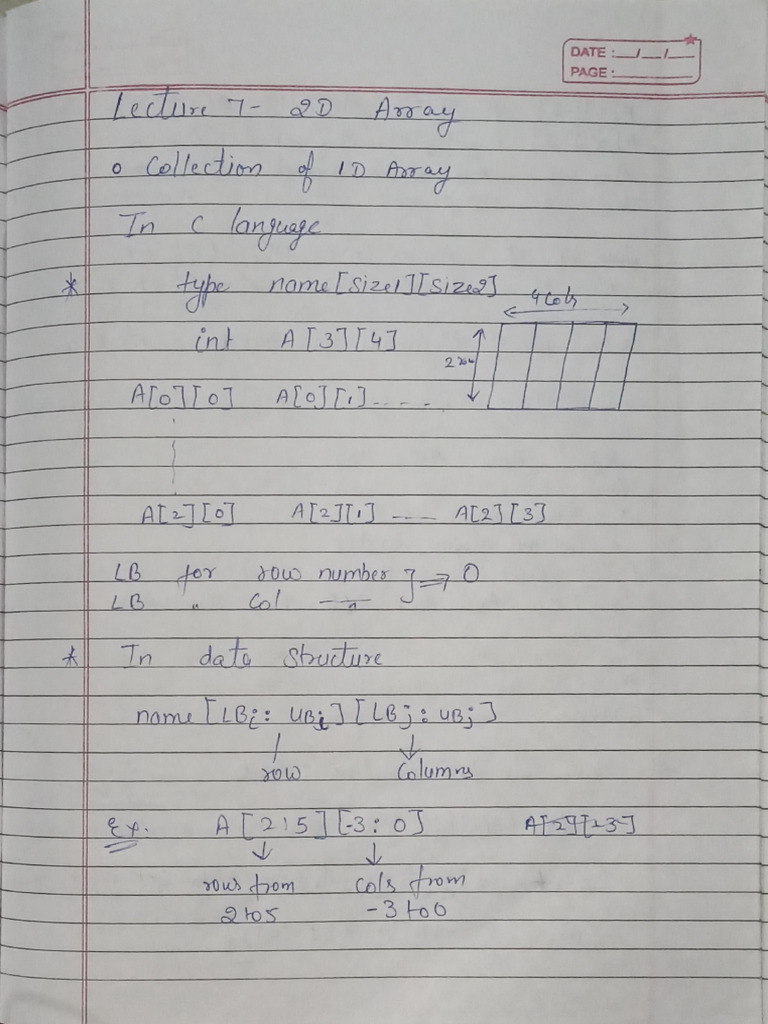 DATE : __/__/__
PAGE : ______
Lecture 7- 2D Array
o Collection of 1D Array
In C language
* type name[Size1][Size2]
4 Cols
int A[3][4]
2 row
A[0][0] A[0][1]----
A[2][0] A[2][1] --- A[2][3]
LB for row number } ⇒ 0
LB " Col —"—
* In data Structure
name [LBi: UBi] [LBj : UBj]
row Columns
Ex. A [2:5] [-3: 0] A[2][-3]
↓ ↓
rows from Cols from
2 to 5 -3 to 0